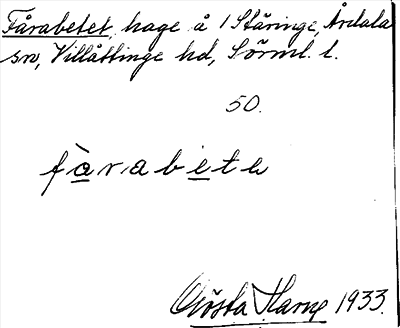 Fårabetet, hage å 1 Stäringe, Årdala
sn, Villåttinge hd, Sörml. l.
50.
fàrabete
Gösta Harne 1933.